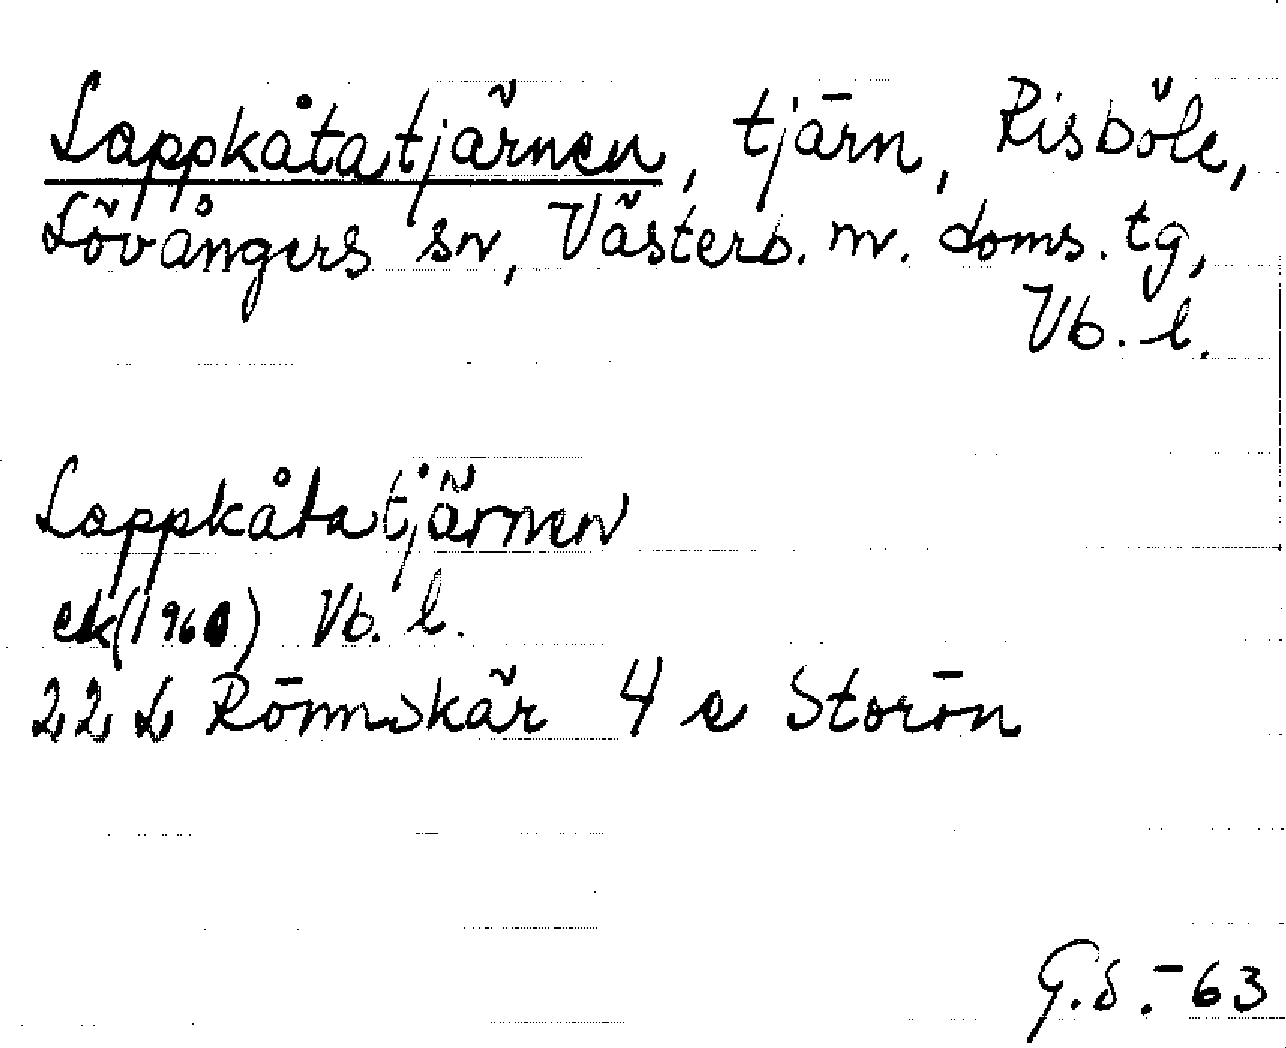 Lappkåtatjärnen, tjärn, Risböle,
Lövångers sn, Västerb. n. doms. tg,
Vb. l.
Lappkåtatjärnen
ek (1960) Vb. l.
22 L Rönnskär 4 e Storön
G.S. -63